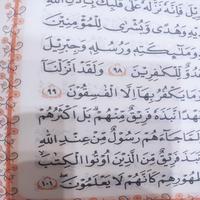 يلَ فَإِنَّهُۥ نَزَّلَهُۥ عَلَىٰ قَلْبِكَ بِإِذْنِ ٱللَّهِ
يْهِ وَهُدًى وَبُشْرَىٰ لِلْمُؤْمِنِينَ
وَمَلَٰٓئِكَتِهِۦ وَرُسُلِهِۦ وَجِبْرِيلَ
دُوٌّ لِّلْكَٰفِرِينَ ٩٨ وَلَقَدْ أَنزَلْنَآ
وَمَا يَكْفُرُ بِهَآ إِلَّا ٱلْفَٰسِقُونَ ٩٩
هْدًا نَّبَذَهُۥ فَرِيقٌ مِّنْهُم بَلْ أَكْثَرُهُمْ
لَمَّا جَآءَهُمْ رَسُولٌ مِّنْ عِندِ ٱللَّهِ
نَبَذَ فَرِيقٌ مِّنَ ٱلَّذِينَ أُوتُوا۟ ٱلْكِتَٰبَ
ظُهُورِهِمْ كَأَنَّهُمْ لَا يَعْلَمُونَ ١٠١